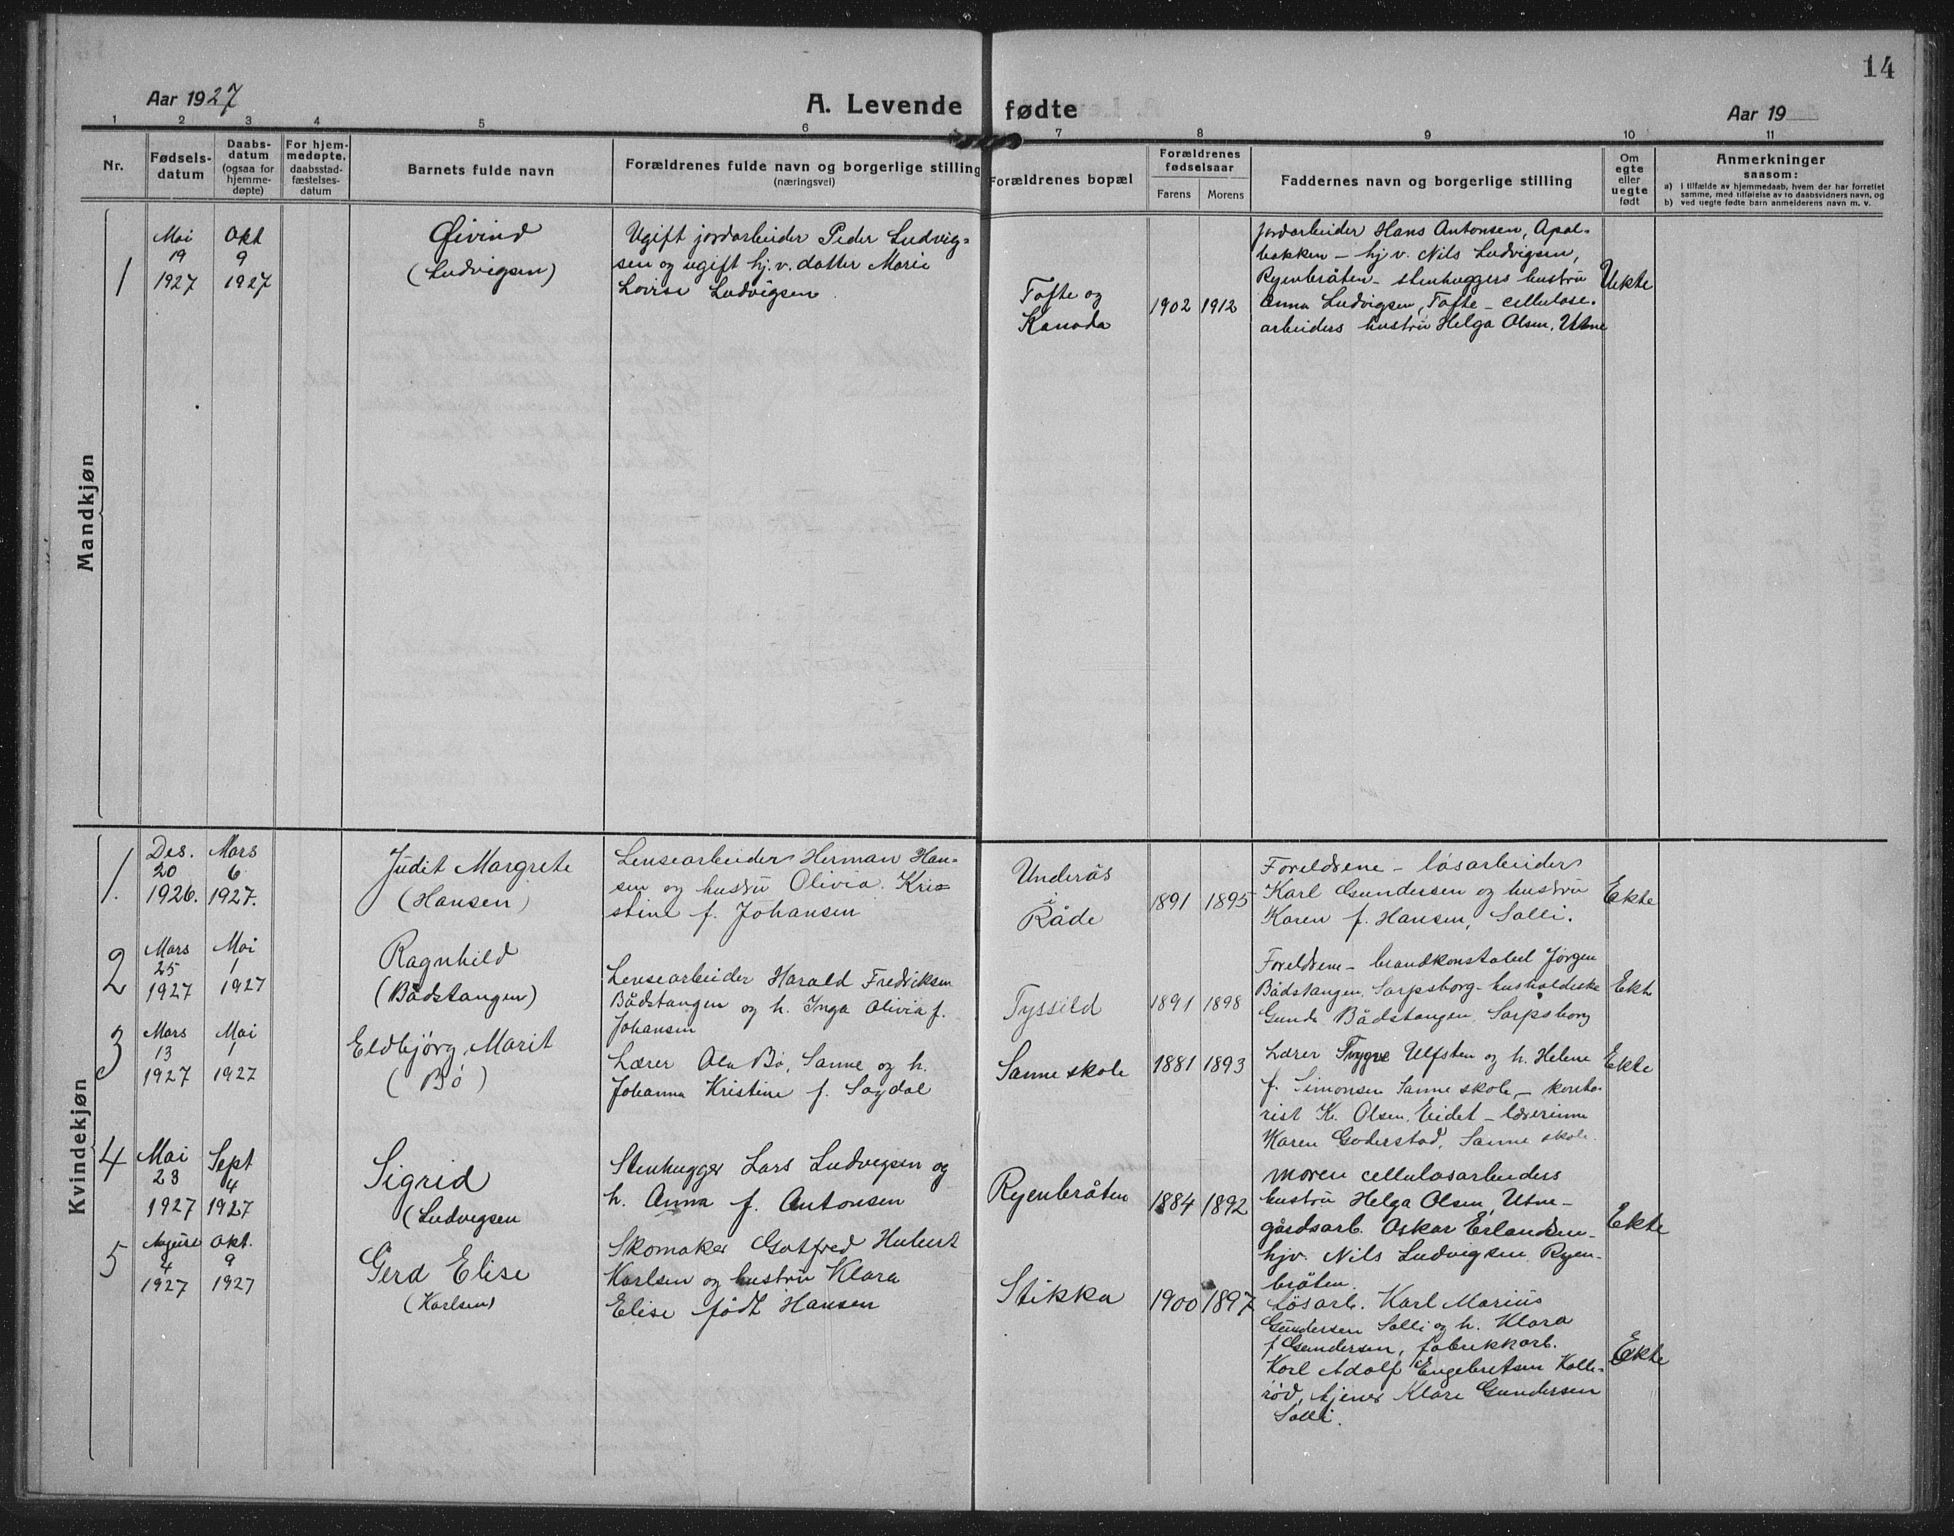 14
Aar 1927
A. Levende fødte
Aar 19
1 2 3 4 5 6 7 8 9 10 11
Nr.
Fødsels-
datum
Daabs-
datum
(ogsaa for
hjemme-
døpte)
For hjem-
medøpte,
daabsstad-
fæstelses-
datum
Barnets fulde navn
Forældrenes fulde navn og borgerlige stilling
(næringsvei)
Forældrenes bopæl
Forældrenes
fødselsaar
Farens Morens
Faddernes navn og borgerlige stilling
Om
egte
eller
uegte
født
Anmerkninger
saasom:
a) i tilfælde av hjemmedaab, hvem der har forrettet
samme, med tilføielse av to daabsvidners navn, og
b) ved uegte fødte barn anmelderens navn m. v.
Mandkjøn
1
Mai
19
1927
Okt
9
1927
Øivind
(Ludvigsen)
Ugift jordarbeider Peder Ludvig-
sen og ugift hj.v. datter Marie
Lovise Ludvigsen
Tofte og
Kanada
1902 1912
Jordarbeider Hans Antonsen, Apal-
bakken – hj v. Nils Ludvigsen,
Ryenbråten – stenhuggers hustru
Anna Ludvigsen, Tofte – cellulose-
arbeiders hustru Helga Olsen, Utne
Uekte
Kvindekjøn
1.
Des.
20
1926.
Mars
6
1927.
Judit Margrete
(Hansen)
Lensearbeider Herman Han-
sen og hustru Olivia Kri-
stine f. Johansen
Underås
i
Råde
1891 1895
Foreldrene – løsarbeider
Karl Gundersen og hustru
Karen f. Hansen, Solli.
Ekte
2
Mars
25
1927
Mai
1
1927
Ragnhild
(Bådstangen)
Lensearbeider Harald Fredriksen
Bådstangen og h. Inga Olivia f.
Johansen
Tyssild
1891 1898
Foreldrene – brandkonstabel Jørgen
Bådstangen, Sarpsborg – husholdeske
Bådstangen, Sarpsborg
Ekte
3
Mars
13
1927
Mai
1
1927
Eldbjørg Marit
(Bö)
Lærer Ola Bö, Sanne og h.
Johanna Kristine f. Sagdal
Sanne skole
1881 1893
Lærer Trygve Ulfsten og h. Helene
f. Simonsen Sanne skole – konto-
rist K. Olsen, Eidet – lærerinne
Karen Goderstad, Sanne skole.
Ekte
4
Mai
23
1927
Sept
4
1927
Sigrid
(Ludvigsen
Stenhugger Lars Ludvigsen og
h. Anna f. Antonsen
Ryenbråten
1884 1892
Moren cellulosarbeiders
hustru Helga Olsen, Utne –
gårdsarb. Oskar Erlandsen –
hjv. Nils Ludvigsen, Ryen-
bråten.
Ekte
5
August
4
1927
Okt.
9
1927
Gerd Elise
(Karlsen)
Skomaker Gotfred Hubert
Karlsen og hustru Klara
Elise født Hansen
Stikka
1900 1897
Løsarb. Karl Marius
Gundersen Solli og h. Klara
f Gundersen, fabrikkarb.
Karl Adolf Engebretsen Kolle-
rød, tjener Klare Gundersen
Solli.
Ekte